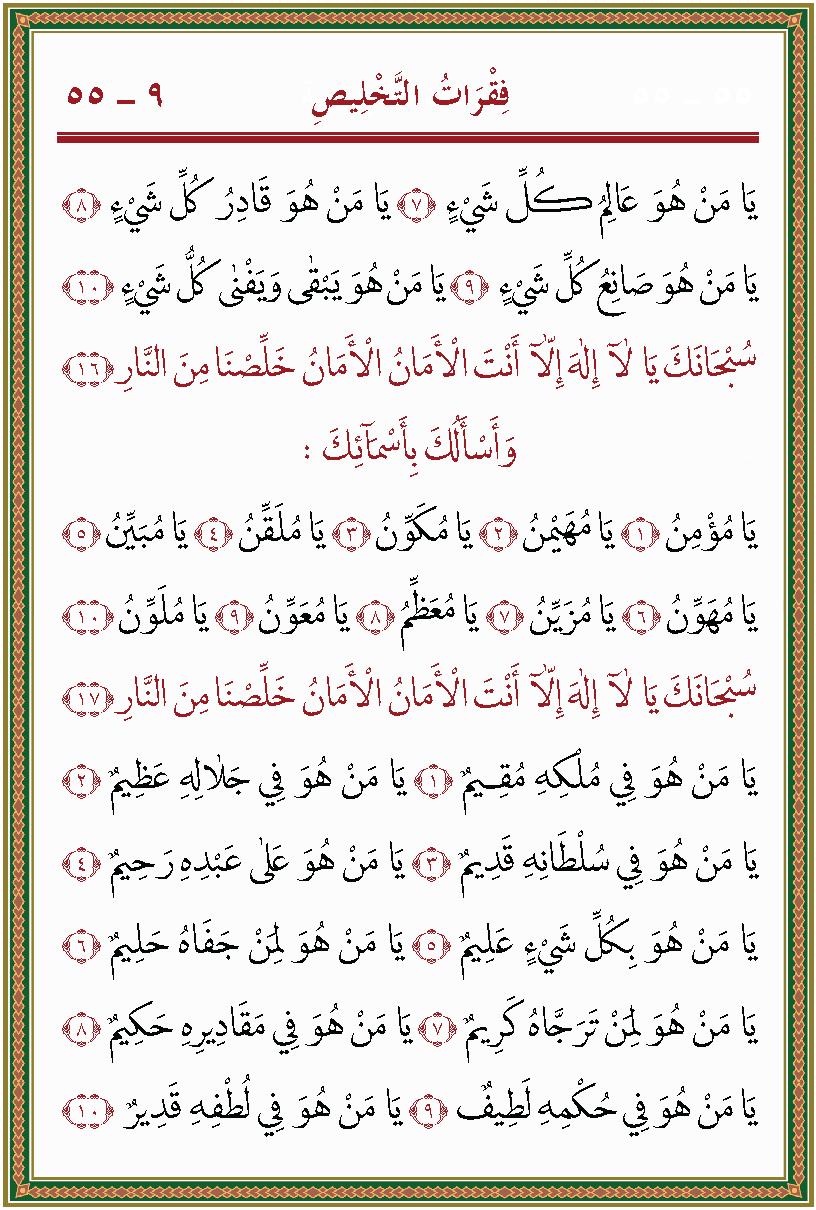 فِقْرَاتُ التَّخْلِيصِ ٩ ـ ٥٥
يَا مَنْ هُوَ عَالِمُ كُلِّ شَيْءٍ ﴿٧﴾ يَا مَنْ هُوَ قَادِرُ كُلِّ شَيْءٍ ﴿٨﴾
يَا مَنْ هُوَ صَانِعُ كُلِّ شَيْءٍ ﴿٩﴾ يَا مَنْ هُوَ يَبْقٰى وَيَفْنٰى كُلُّ شَيْءٍ ﴿١٠﴾
سُبْحَانَكَ يَا لَآ إِلٰهَ إِلَّآ أَنْتَ الْأَمَانُ الْأَمَانُ خَلِّصْنَا مِنَ النَّارِ ﴿١٦﴾
وَأَسْأَلُكَ بِأَسْمَآئِكَ :
يَا مُؤْمِنُ ﴿١﴾ يَا مُهَيْمِنُ ﴿٢﴾ يَا مُكَوِّنُ ﴿٣﴾ يَا مُلَقِّنُ ﴿٤﴾ يَا مُبَيِّنُ ﴿٥﴾
يَا مُهَوِّنُ ﴿٦﴾ يَا مُزَيِّنُ ﴿٧﴾ يَا مُعَظِّمُ ﴿٨﴾ يَا مُعَوِّنُ ﴿٩﴾ يَا مُلَوِّنُ ﴿١٠﴾
سُبْحَانَكَ يَا لَآ إِلٰهَ إِلَّآ أَنْتَ الْأَمَانُ الْأَمَانُ خَلِّصْنَا مِنَ النَّارِ ﴿١٧﴾
يَا مَنْ هُوَ فِي مُلْكِهِ مُقِيمٌ ﴿١﴾ يَا مَنْ هُوَ فِي جَلَالِهِ عَظِيمٌ ﴿٢﴾
يَا مَنْ هُوَ فِي سُلْطَانِهِ قَدِيمٌ ﴿٣﴾ يَا مَنْ هُوَ عَلٰى عَبْدِهِ رَحِيمٌ ﴿٤﴾
يَا مَنْ هُوَ بِكُلِّ شَيْءٍ عَلِيمٌ ﴿٥﴾ يَا مَنْ هُوَ لِمَنْ جَفَاهُ حَلِيمٌ ﴿٦﴾
يَا مَنْ هُوَ لِمَنْ تَرَجَّاهُ كَرِيمٌ ﴿٧﴾ يَا مَنْ هُوَ فِي مَقَادِيرِهِ حَكِيمٌ ﴿٨﴾
يَا مَنْ هُوَ فِي حُكْمِهِ لَطِيفٌ ﴿٩﴾ يَا مَنْ هُوَ فِي لُطْفِهِ قَدِيرٌ ﴿١٠﴾